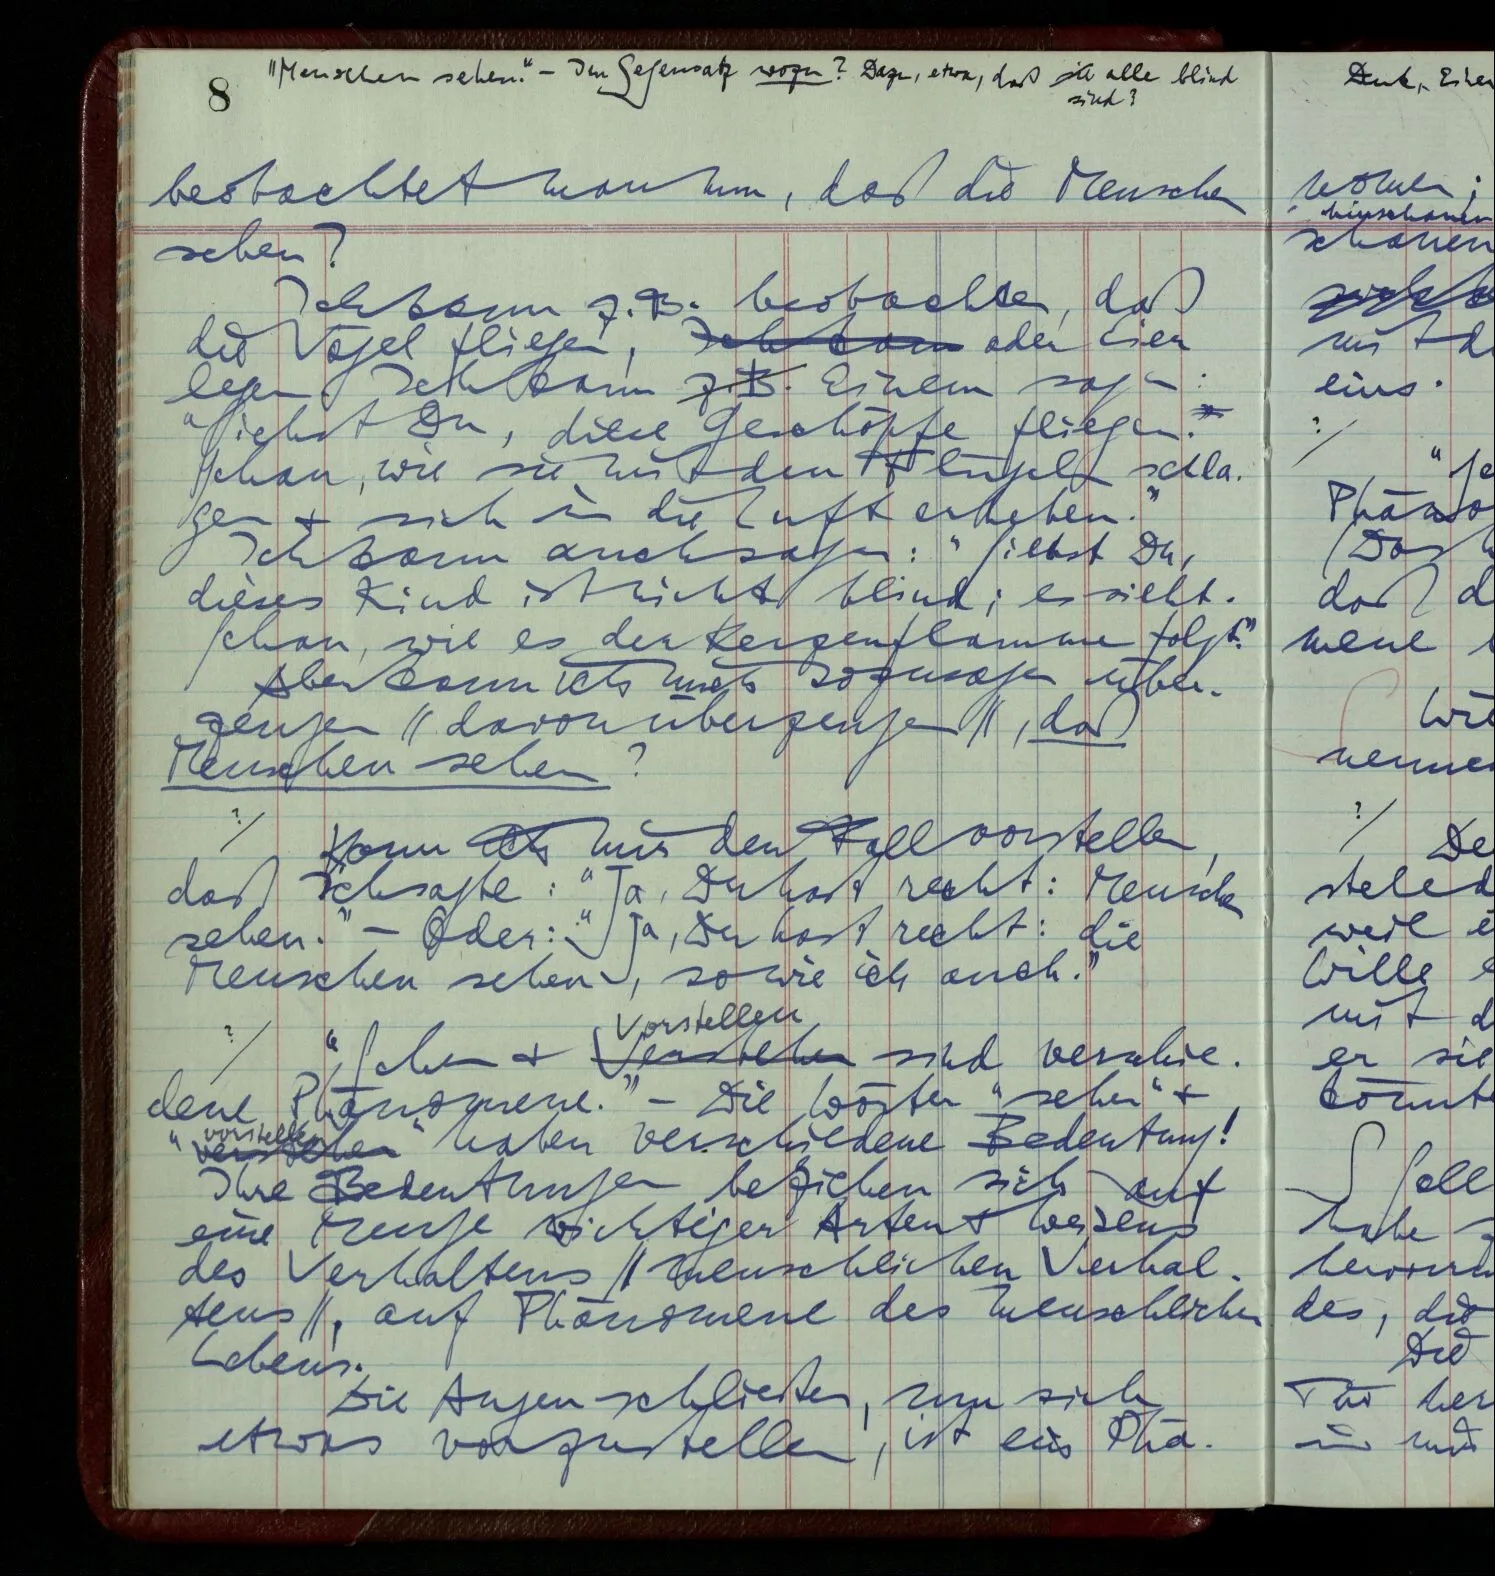 8
"Menschen sehen." – Im Gegensatz wozu? Dazu, etwa, daß sie alle blind
sind?
beobachtet man nun, daß die Menschen
sehen?
Ich kann z.B. beobachten, daß
die Vögel fliegen, Ich kann oder Eier
legen. Ich kann z.B. Einem sagen:
"Siehst Du, diese Geschöpfe fliegen.
Schau, wie sie mit den Flügeln schla-
gen & sich in die Luft erheben."
Ich kann auch sagen: "Siehst Du,
dieses Kind ist nicht blind; es sieht.
Schau, wie es der Kerzenflamme folgt."
Aber kann ich mich sozusagen über-
zeugen // davon überzeugen //, daß
Menschen sehen?
?/
Kann ich mir den Fall vorstellen,
daß ich sagte: "Ja, Du hast recht: Menschen
sehen." – Oder: "Ja, Du hast recht: die
Menschen sehen, so wie ich auch."
?/
Vorstellen
"Sehen & Verstehen sind verschie-
dene Phänomene." – Die Wörter "sehen" &
vorstellen
"verstehen" haben verschiedene Bedeutung!
Ihre Bedeutungen beziehen sich auf
eine Menge wichtiger Arten & Weisen
des Verhaltens // menschlichen Verhal-
tens //, auf Phänomene des menschlichen
Lebens.
Die Augen schließen, um sich
etwas vorzustellen, ist ein Phä-
Denk, Einer
hinschauen
schauen
mit
eins.
?/
"Se
daß d
meine
Wie
nennen
?/
De
weil e
Wille
mit d
er sie
könnte
Soll
habe
des, die
Die